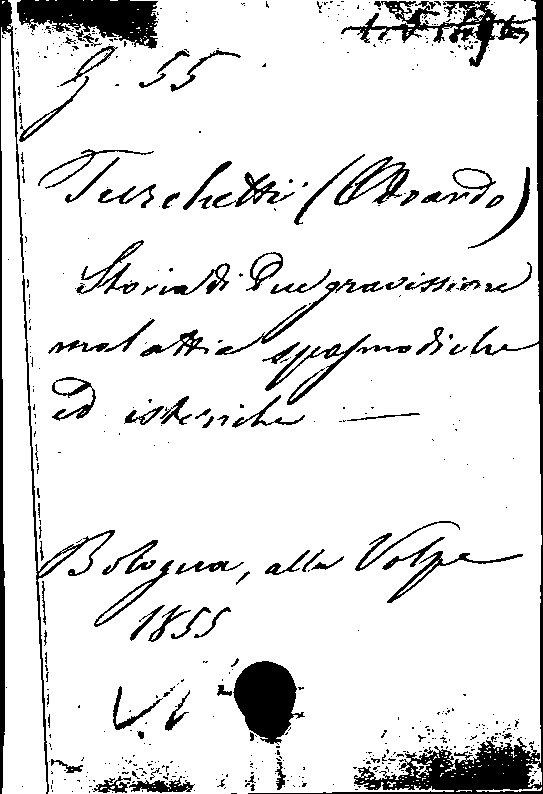 G. 55
Turchetti (Odoardo)
Storia di due gravissime
malattie spasmodiche
ed isteriche —
Bologna, alla Volpe
1855